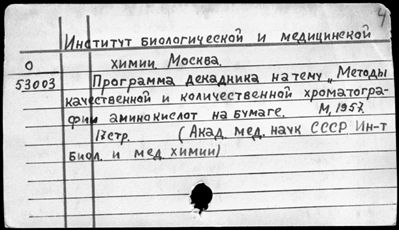 4
Институт биологической и медицинской
О химии, Москва.
53003 Программа декадника на тему „Методы
качественной и количественной хроматогра-
фии аминокислот на бумаге. М, 1957,
17 стр. (Акад. мед. наук СССР Ин-т
биол. и мед химии)